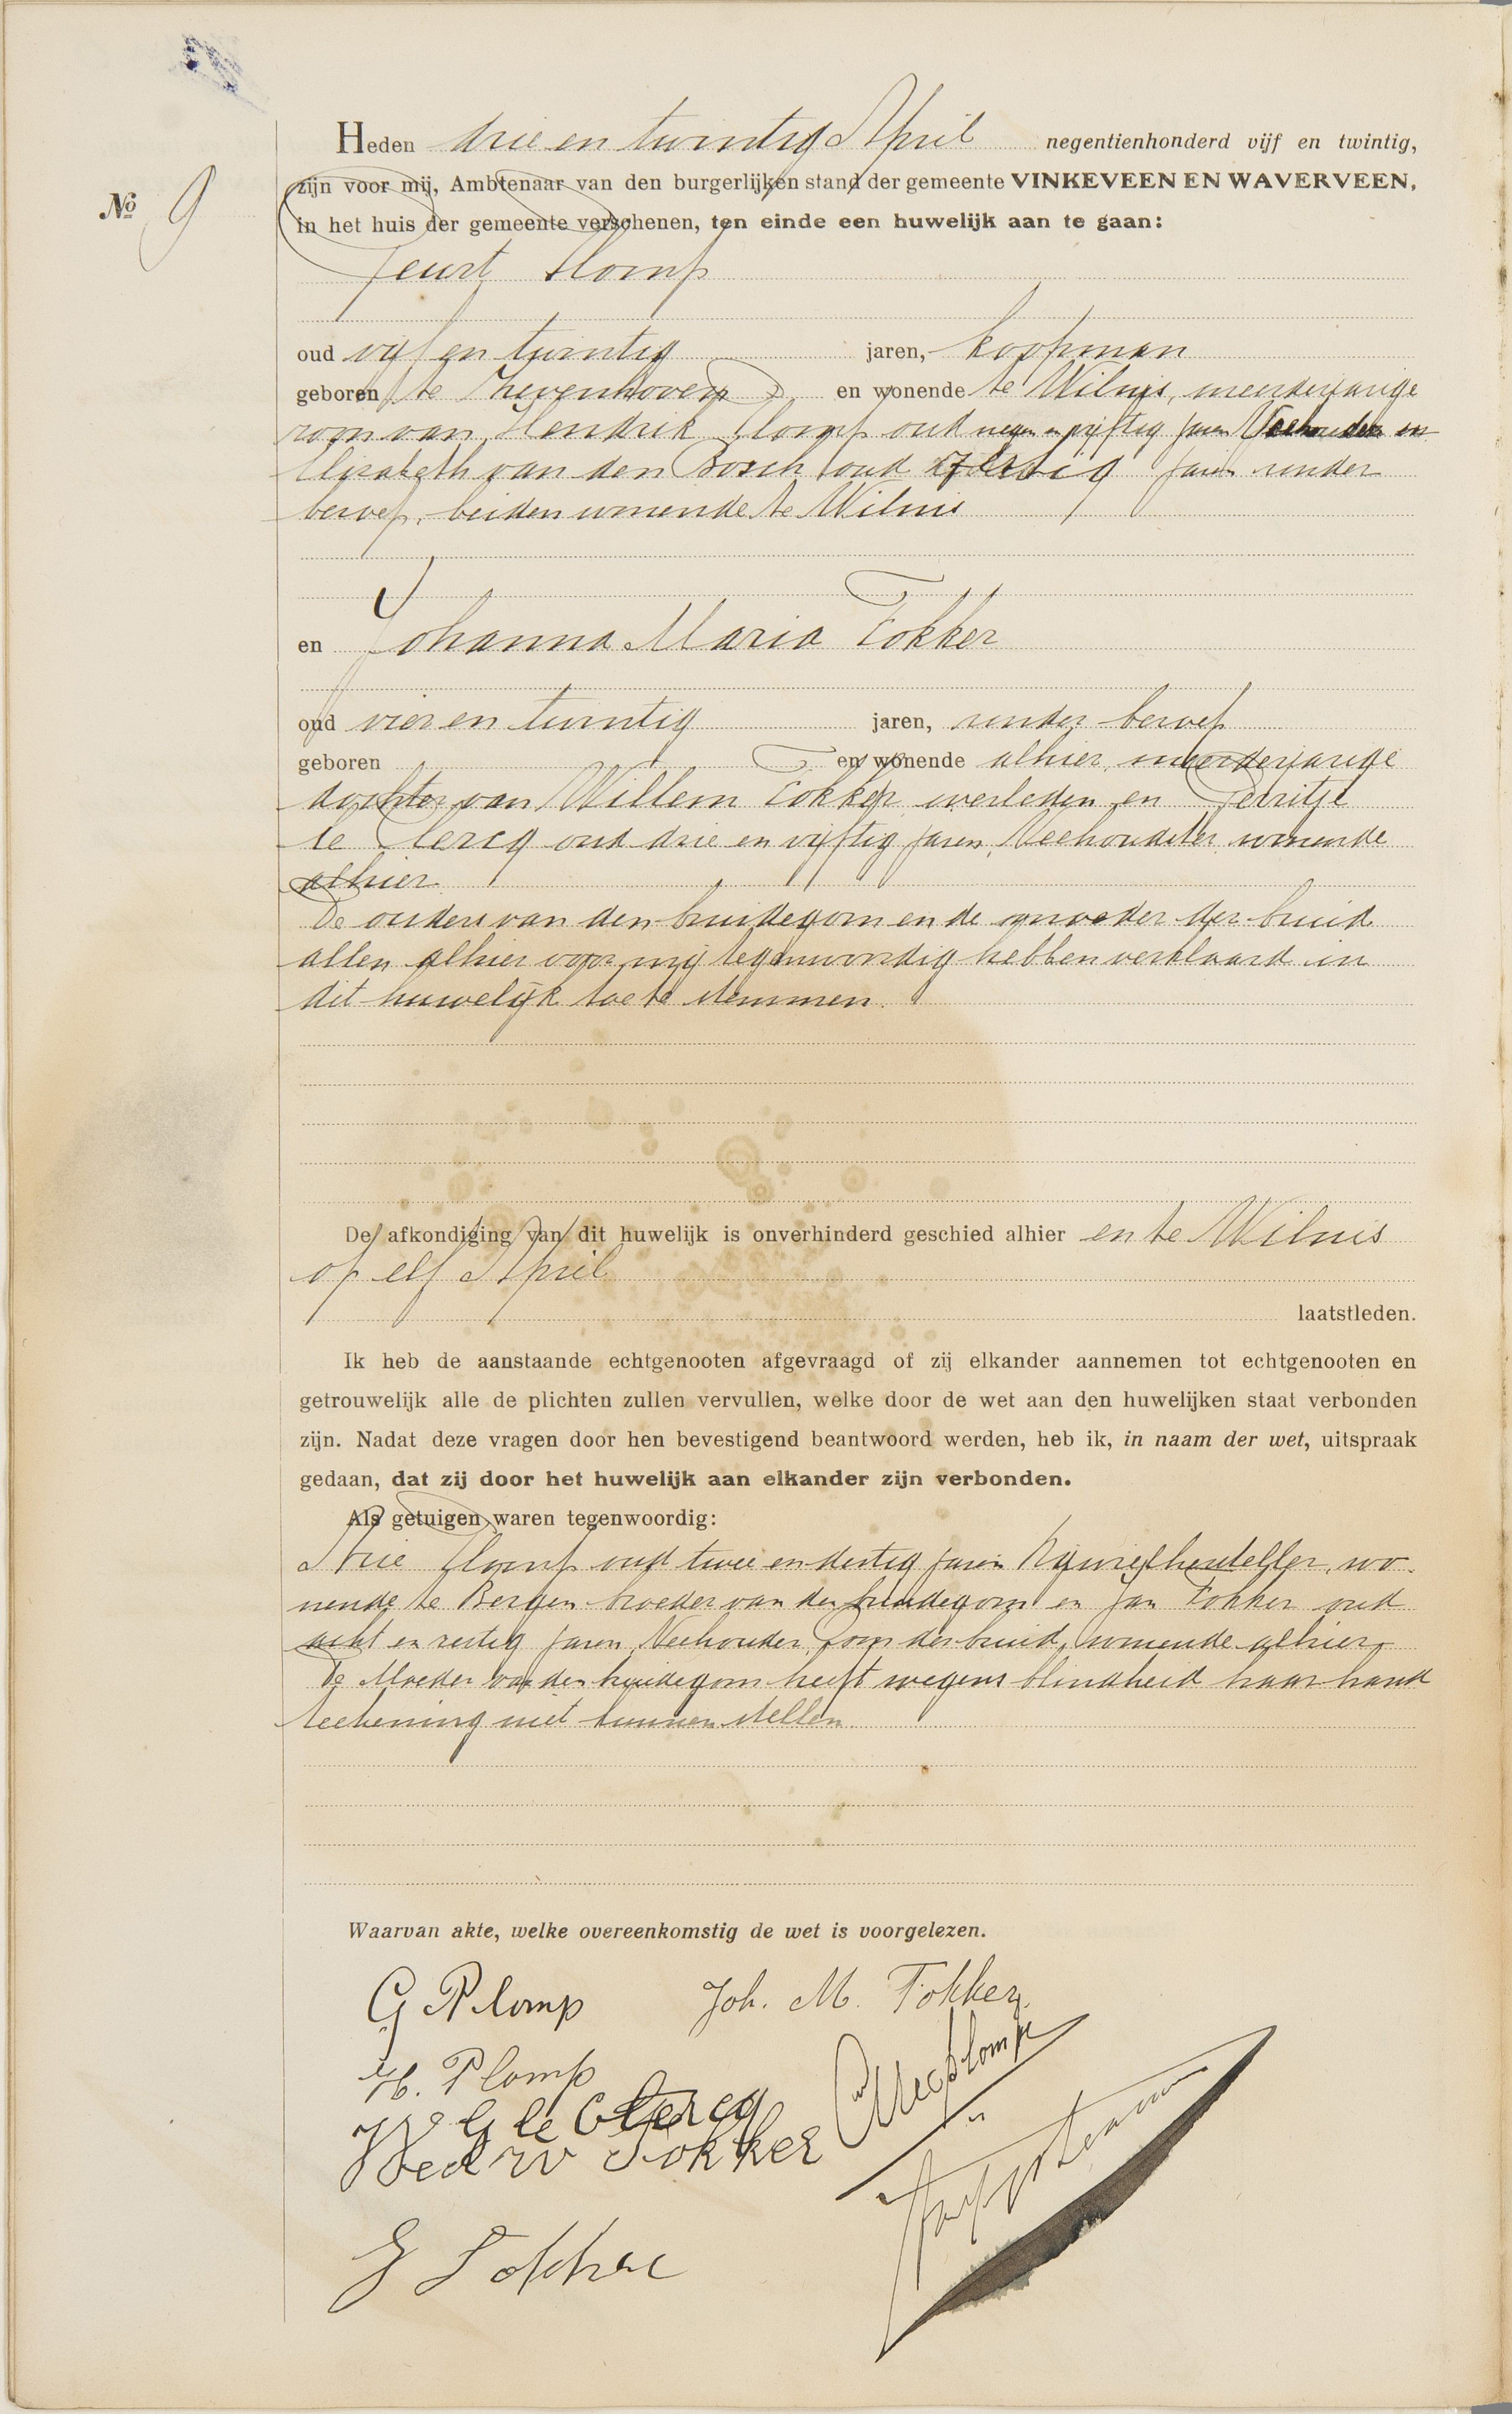 Heden drie en twintig April negentienhonderd vijf en twintig,
zijn voor mij, Ambtenaar van den burgerlijken stand der gemeente VINKEVEEN EN WAVERVEEN,
No 9
in het huis der gemeente verschenen, ten einde een huwelijk aan te gaan:
Geurt Plomp
oud vijf en twintig jaren, koopman
geboren te Zevenhoven en wonende te Wilnis, meerderjarige
zoon van Hendrik Plomp oud negen en vijftig jaren Veehouder en
Elisabeth van den Bosch oud zestig jaren zonder
beroep, beiden wonende te Wilnis
en Johanna Maria Fokker
oud vier en twintig jaren, zonder beroep
geboren en wonende alhier, meerderjarige
dochter van Willem Fokker, overleden en Gerritje
le Clercq oud drie en vijftig jaren, Veehoudster, wonende
alhier.
De ouders van den bruidegom en de moeder der bruid
allen alhier voor mij tegenwoordig hebben verklaard in
dit huwelijk toe te stemmen.
De afkondiging van dit huwelijk is onverhinderd geschied alhier en te Wilnis
op elf April
laatstleden.
Ik heb de aanstaande echtgenooten afgevraagd of zij elkander aannemen tot echtgenooten en
getrouwelijk alle de plichten zullen vervullen, welke door de wet aan den huwelijken staat verbonden
zijn. Nadat deze vragen door hen bevestigend beantwoord werden, heb ik, in naam der wet, uitspraak
gedaan, dat zij door het huwelijk aan elkander zijn verbonden.
Als getuigen waren tegenwoordig:
Arie Plomp oud twee en dertig jaren Rijwielhersteller, wo-
nende te Bergen broeder van den bruidegom en Jan Fokker oud
acht en zestig jaren, Veehouder, oom der bruid, wonende alhier
De Moeder van den bruidegom heeft wegens blindheid haar hand
teekening niet kunnen stellen.
Waarvan akte, welke overeenkomstig de wet is voorgelezen.
G Plomp Joh. M. Fokker
H. Plomp
G le Clercq
Wed W Fokker
Plomp
Fokker